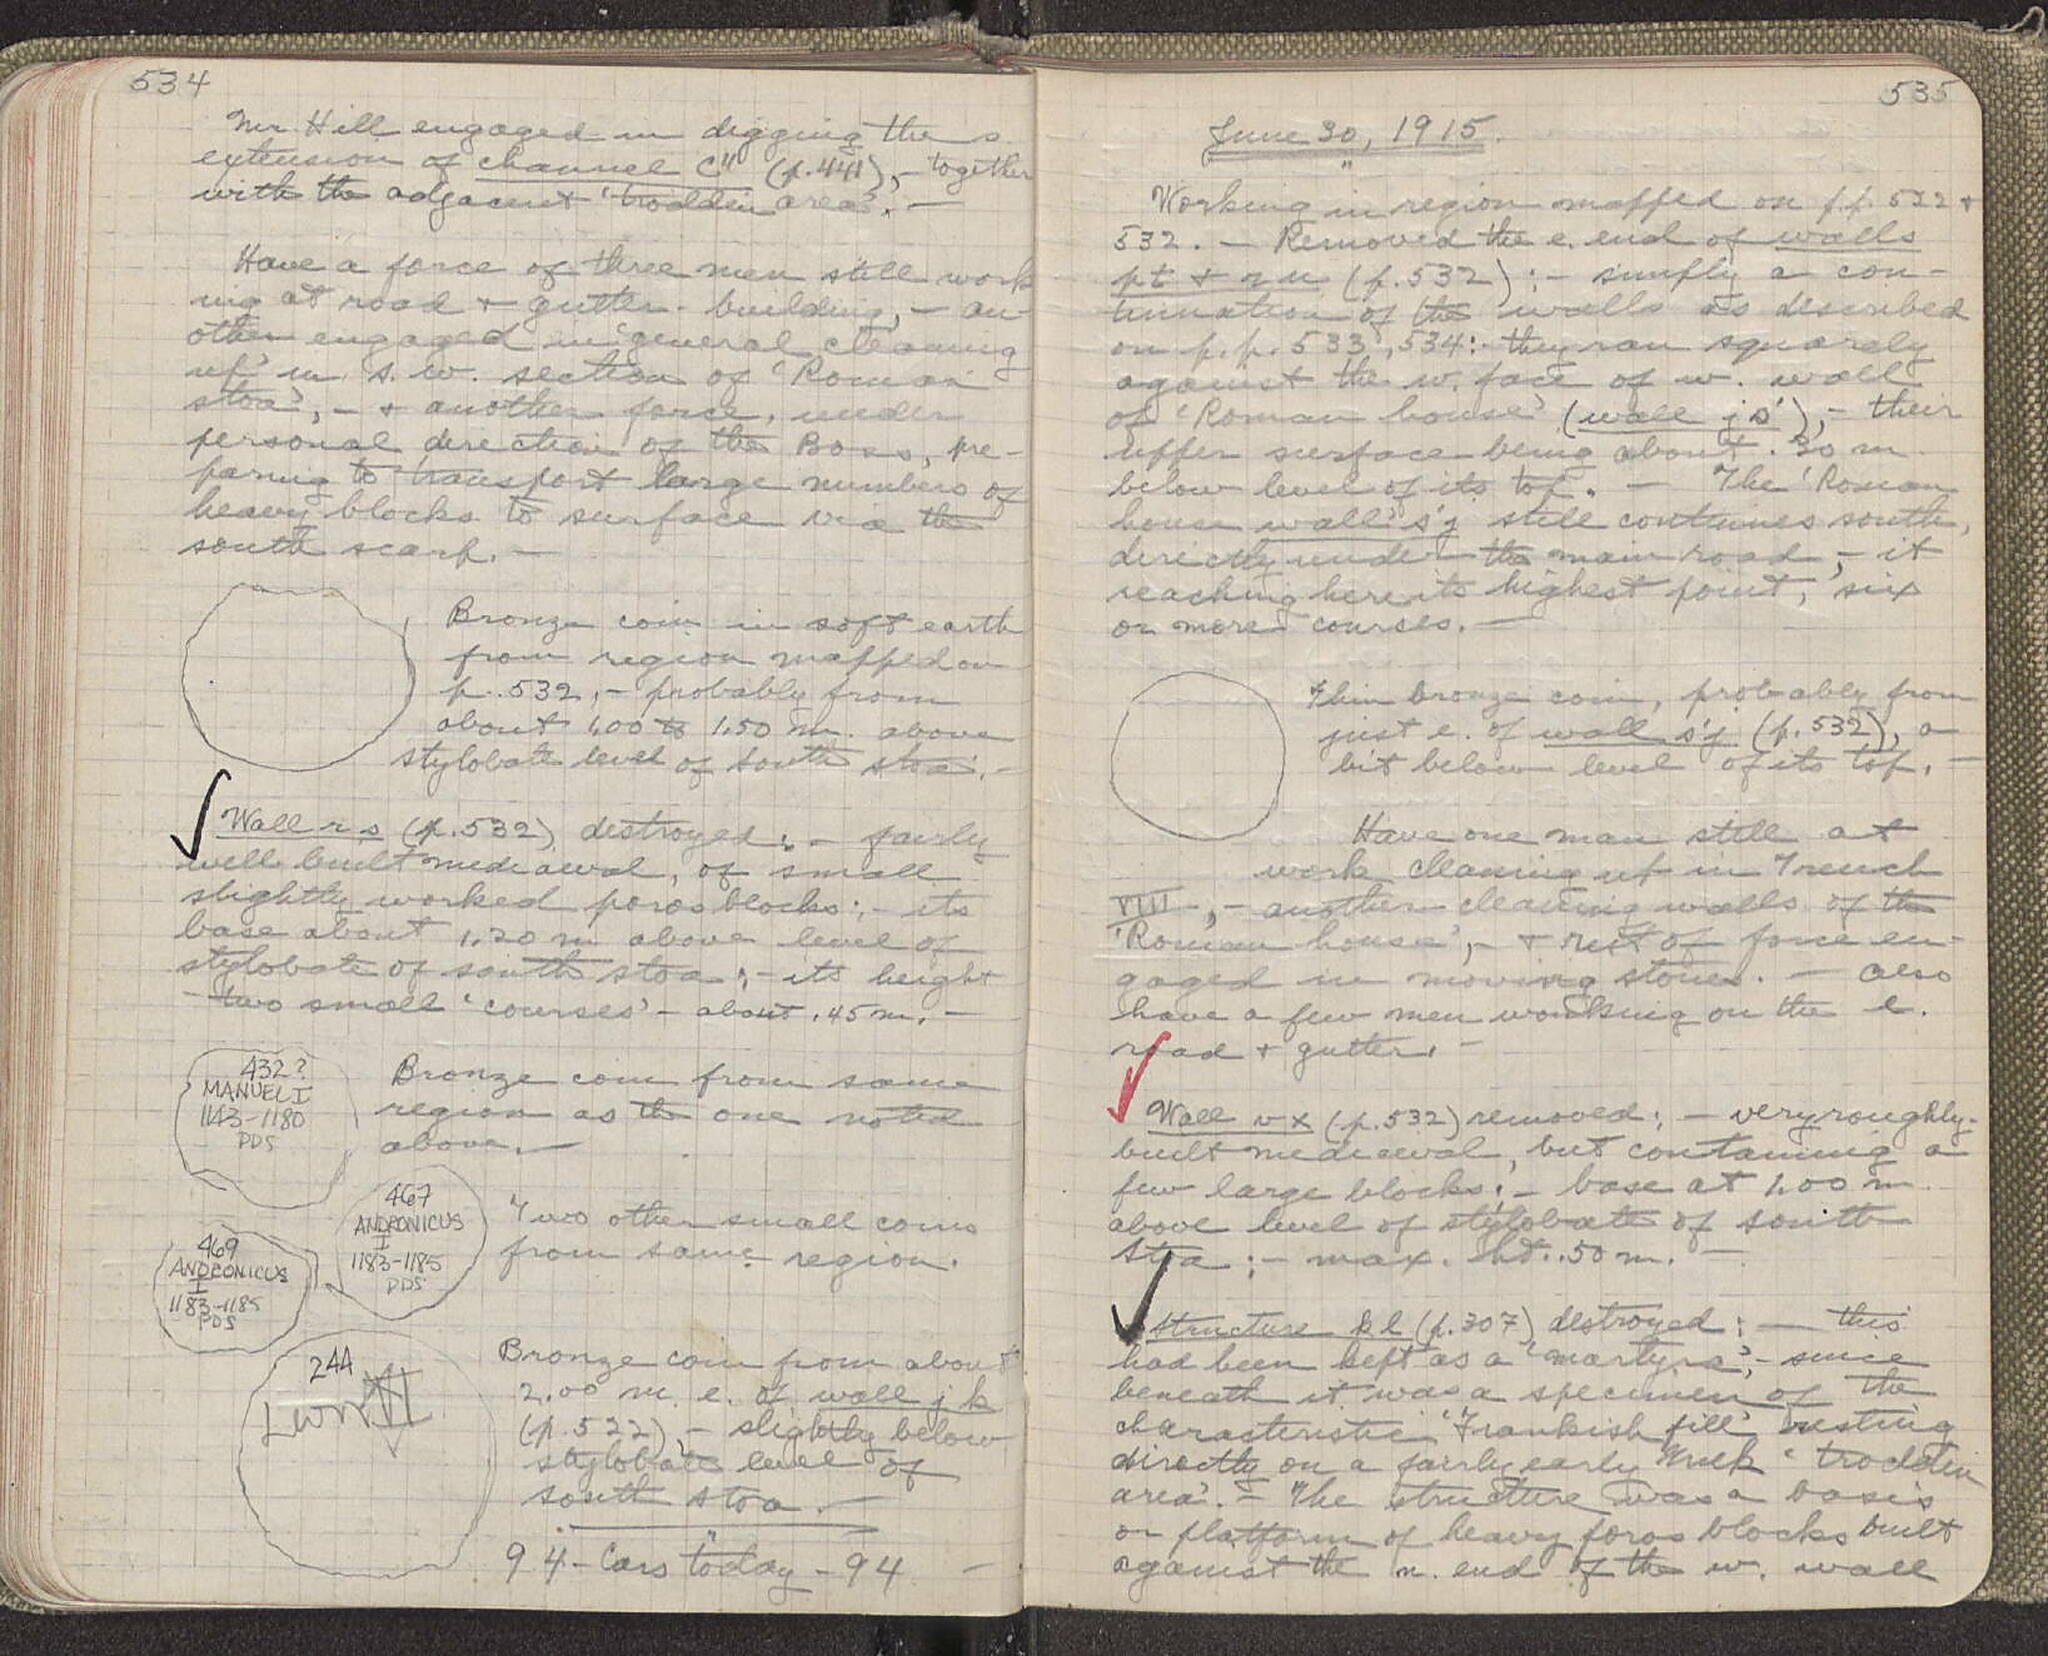 534
Mr Hill engaged in digging the s.
extension of channel C" (p.441), - together
with the adjacent 'trodden area'. -
Have a force of three men still work
ing at road + gutter-building, - an-
other engaged in 'general cleaning
up' in s.w. section of 'Roman
stoa', - + another force, under
personal direction of the Boss, pre-
paring to transport large numbers of
heavy blocks to surface via the
south scarp. -
Bronze coin in soft earth
from region mapped on
p. 532, - probably from
about 1.00 to 1.50 m. above
stylobate level of south stoa. -
Wall r s (p.532) destroyed: - fairly
well built mediaeval, of small
slightly worked poros blocks: - its
base about 1.20 m above level of
stylobate of south stoa: - its height
- two small 'courses' - about .45 m. -
432?
MANUEL I
1143-1180
PDS
Bronze coin from same
region as the one noted
above. -
467
ANDRONICUS
I
1183-1185
PDS
469
ANDRONICUS
I
1183-1185
PDS
Two other small coins
from same region.
244
Bronze coin from about
2.00 m. e. of wall j k
(p.522), - slightly below
stylobate level of
south stoa. -
94 - Cars today - 94 -
535
June 30, 1915.
Working in region mapped on p.p. 522 +
532. - Removed the e. end of walls
pt + (p.532): - simply a con-
tinuation of the walls as described
on p.p. 533, 534: - they ran squarely
against the w. face of w. wall
of 'Roman house' (wall j s'), - their
upper surface being about .30 m
below level of its top. - The 'Roman
house wall' s'j still continues south,
directly under the main road, - it
reaching here its highest point, six
or more courses. -
Thin bronze coin, probably from
just e. of wall s'j (p.532), a
bit below level of its top. -
Have one man still at
work cleaning up in Trench
VIII, - another cleaning walls of the
'Roman house', - + rest of force en-
gaged in moving stones. - Also
have a few men working on the e.
road + gutter. -
Wall v x (p.532) removed: - very roughly-
built mediaeval, but containing a
few large blocks: - base at 1.00 m
above level of stylobate of south
stoa: - max. ht. .50 m. -
Structure k l (p.307) destroyed: - this
had been kept as a 'martyra', - since
beneath it was a specimen of the
characteristic 'Frankish fill' resting
directly on a fairly early Greek 'trodden
area'. - The structure was a basis
or platform of heavy poros blocks built
against the n. end of the w. wall